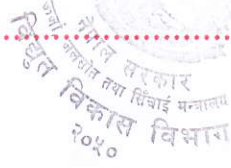 नेपाल सरकार
ऊर्जा, जलस्रोत तथा सिँचाइ मन्त्रालय
विद्युत विकास विभाग
२०५०